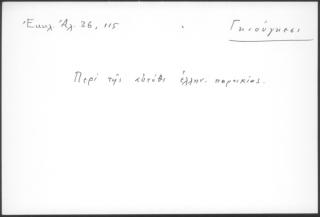 Ἐκκλ. Ἀλ. 26, 115
Γκιούγκεσι
Περί τῆς αὐτόθι ἑλλην. παροικίας.